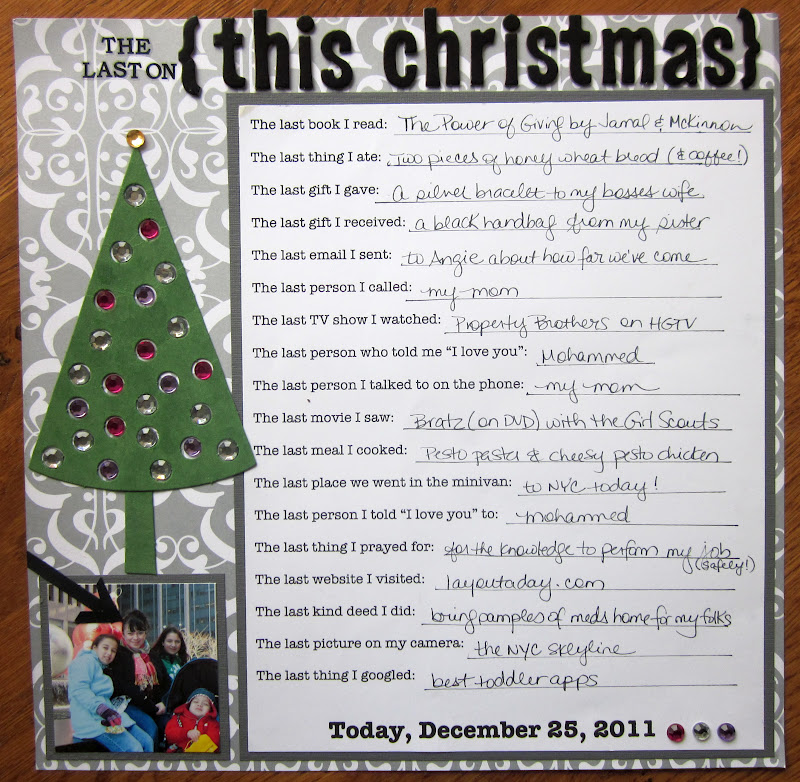 THE
LAST ON
{this christmas}
The last book I read: The Power of Giving by Jamal & McKinnon
The last thing I ate: Two pieces of honey wheat bread (& coffee!)
The last gift I gave: a silver bracelet to my bosses wife
The last gift I received: a black handbag from my sister
The last email I sent: to Angie about how far we've come
The last person I called: my mom
The last TV show I watched: Property Brothers on HGTV
The last person who told me "I love you": Mohammed
The last person I talked to on the phone: my mom
The last movie I saw: Bratz (on DVD) with the Girl Scouts
The last meal I cooked: Pesto pasta & cheesy pesto chicken
The last place we went in the minivan: to NYC today!
The last person I told "I love you" to: mohammed
The last thing I prayed for: for the knowledge to perform my job
(safely!)
The last website I visited: layoutaday.com
The last kind deed I did: bring samples of meds home for my folks
The last picture on my camera: the NYC skyline
The last thing I googled: best toddler apps
Today, December 25, 2011